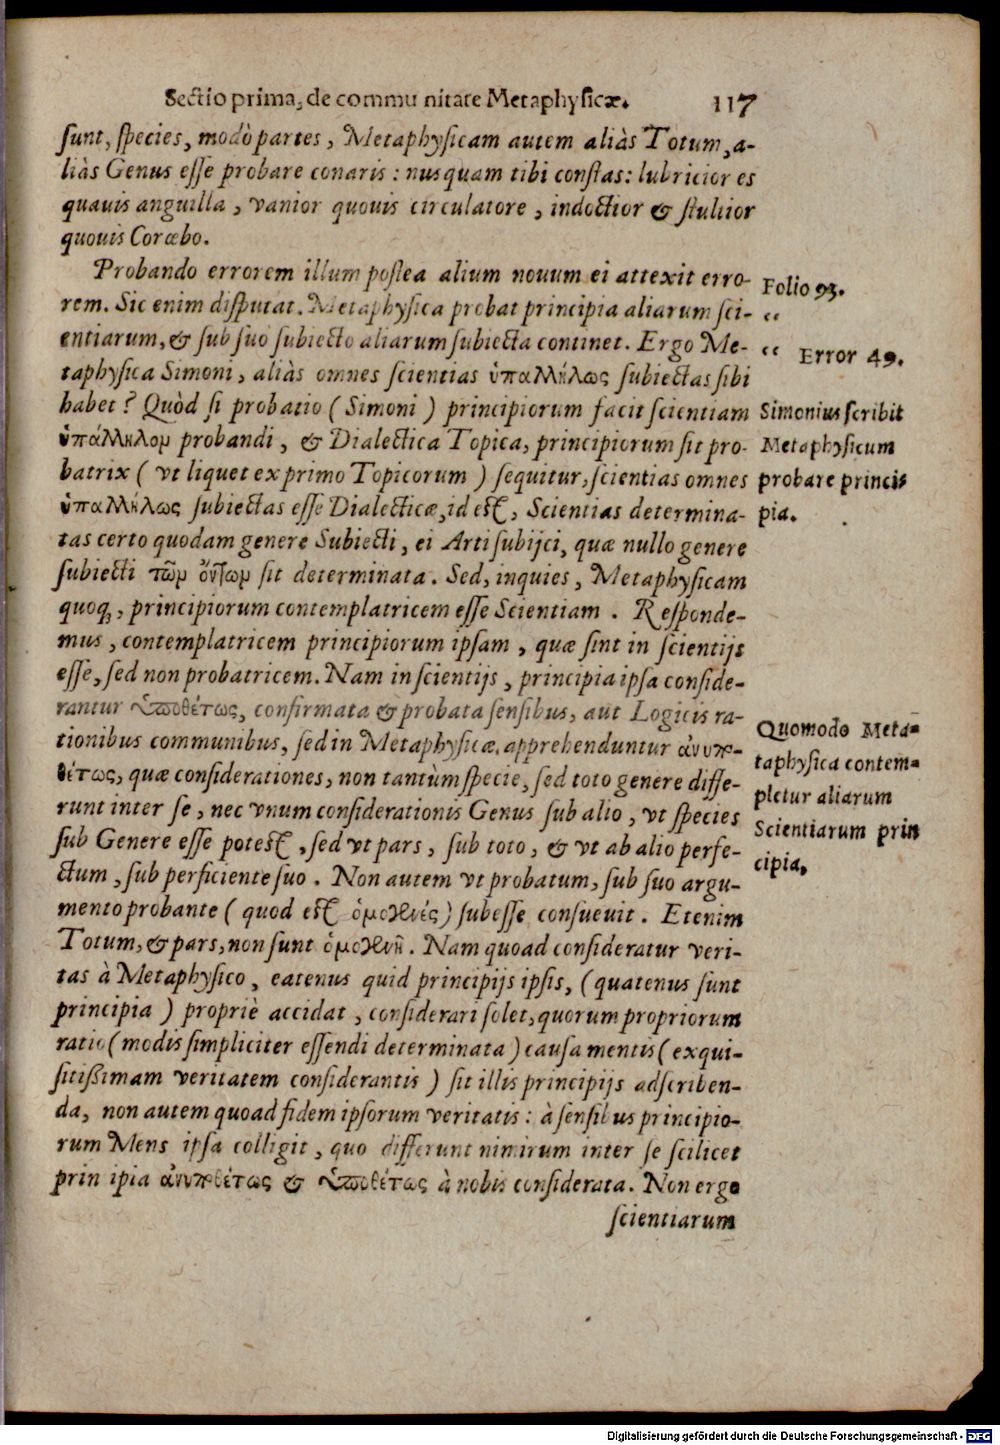 Sectio prima, de commu nitate Metaphysicæ. 117
sunt, species, modò partes, Metaphysicam autem aliàs Totum, a-
liàs Genus esse probare conaris: nusquam tibi constas: lubricior es
quauis anguilla, vanior quouis circulatore, indoctior & stultior
quouis Corœbo.
Probando errorem illum postea alium nouum ei attexit erro-
rem. Sic enim disputat. Metaphysica probat principia aliarum sci-
entiarum, & sub suo subiecto aliarum subiecta continet. Ergo Me-
taphysica Simoni, aliàs omnes scientias ὑπαλλήλως subiectas sibi
habet? Quòd si probatio (Simoni) principiorum facit scientiam
ὑπάλληλομ probandi, & Dialectica Topica, principiorum sit pro-
batrix (vt liquet ex primo Topicorum) sequitur, scientias omnes
ὑπαλλήλως subiectas esse Dialecticæ, id est, Scientias determina-
tas certo quodam genere Subiecti, ei Arti subijci, quæ nullo genere
subiecti τῶμ ὄντωμ sit determinata. Sed, inquies, Metaphysicam
quoq;, principiorum contemplatricem esse Scientiam. Responde-
mus, contemplatricem principiorum ipsam, quæ sint in scientijs
esse, sed non probatricem. Nam in scientijs, principia ipsa conside-
rantur ὑποθέτως, confirmata & probata sensibus, aut Logicis ra-
tionibus communibus, sed in Metaphysicæ, apprehenduntur ἀνυπο-
θέτως, quæ considerationes, non tantùm specie, sed toto genere diffe-
runt inter se, nec vnum considerationis Genus sub alio, vt species
sub Genere esse potest, sed vt pars, sub toto, & vt ab alio perfe-
ctum, sub perficiente suo. Non autem vt probatum, sub suo argu-
mento probante (quod est ὁμογενές) subesse consueuit. Etenim
Totum, & pars, non sunt ὁμογενῆ. Nam quoad consideratur veri-
tas à Metaphysico, eatenus quid principijs ipsis, (quatenus sunt
principia) propriè accidat, considerari solet, quorum propriorum
ratio (modis simpliciter essendi determinata) causa mentis (exqui-
sitißimam veritatem considerantis) sit illis principijs adscriben-
da, non autem quoad fidem ipsorum veritatis: à sensibus principio-
rum Mens ipsa colligit, quo differunt nimirum inter se scilicet
prin ipia ἀνυποθέτως & ὑποθέτως à nobis considerata. Non ergo
scientiarum
Folio 93.
“
“ Error 49.
Simonius scribit
Metaphysicum
probare princi-
pia.
Quomodo Meta-
taphysica contem-
pletur aliarum
Scientiarum prin
cipia.
Digitalisierung gefördert durch die Deutsche Forschungsgemeinschaft - DFG